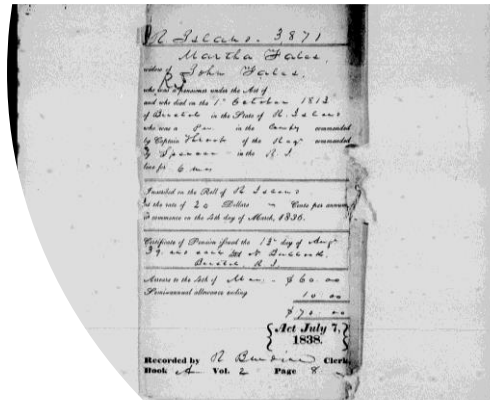 R Island. 3,871
Martha Fales,
widow of John Fales,
who was a pensioner under the Act of
and who died on the 1st October 1813
of Bristol in the State of R. Island
who was a in the Compy commanded
by Captain of the Regt commanded
by Spencer in the R. I.
line for 6 mos
Inscribed on the Roll of R Island
at the rate of 20 Dollars Cents per annum
to commence on the 4th day of March, 1836.
Certificate of Pension issued the 13th day of Augt
39 and sent N Bullock
Bristol R. I.
Arrears to the 4th of Mar $60.00
Semi-annual allowance ending 10.00
$70.00
Act July 7,
1838.
Recorded by Clerk,
Book A Vol. 2 Page 8